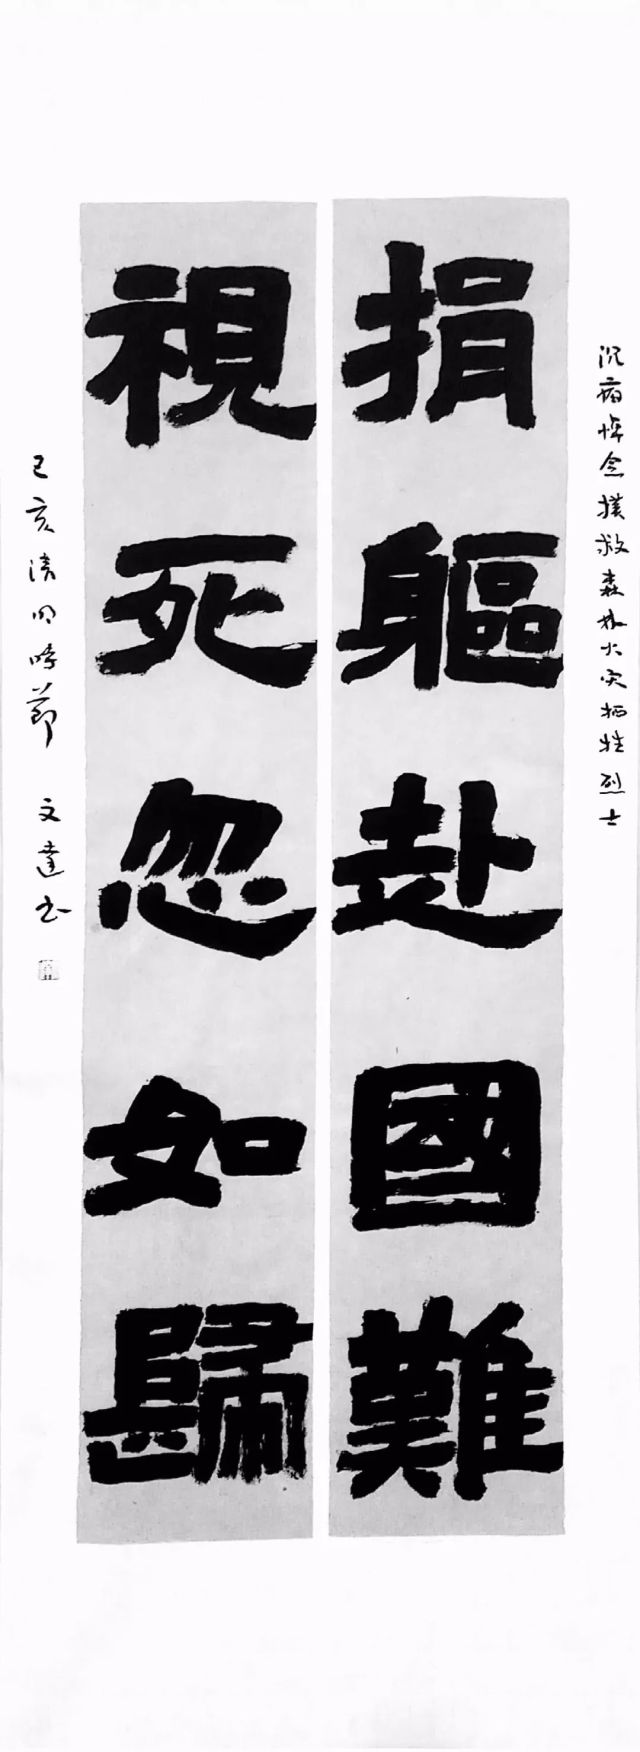 沉痛悼念撲救森林火灾牺牲烈士
捐軀赴國難
視死忽如歸
己亥清明時節 文達书